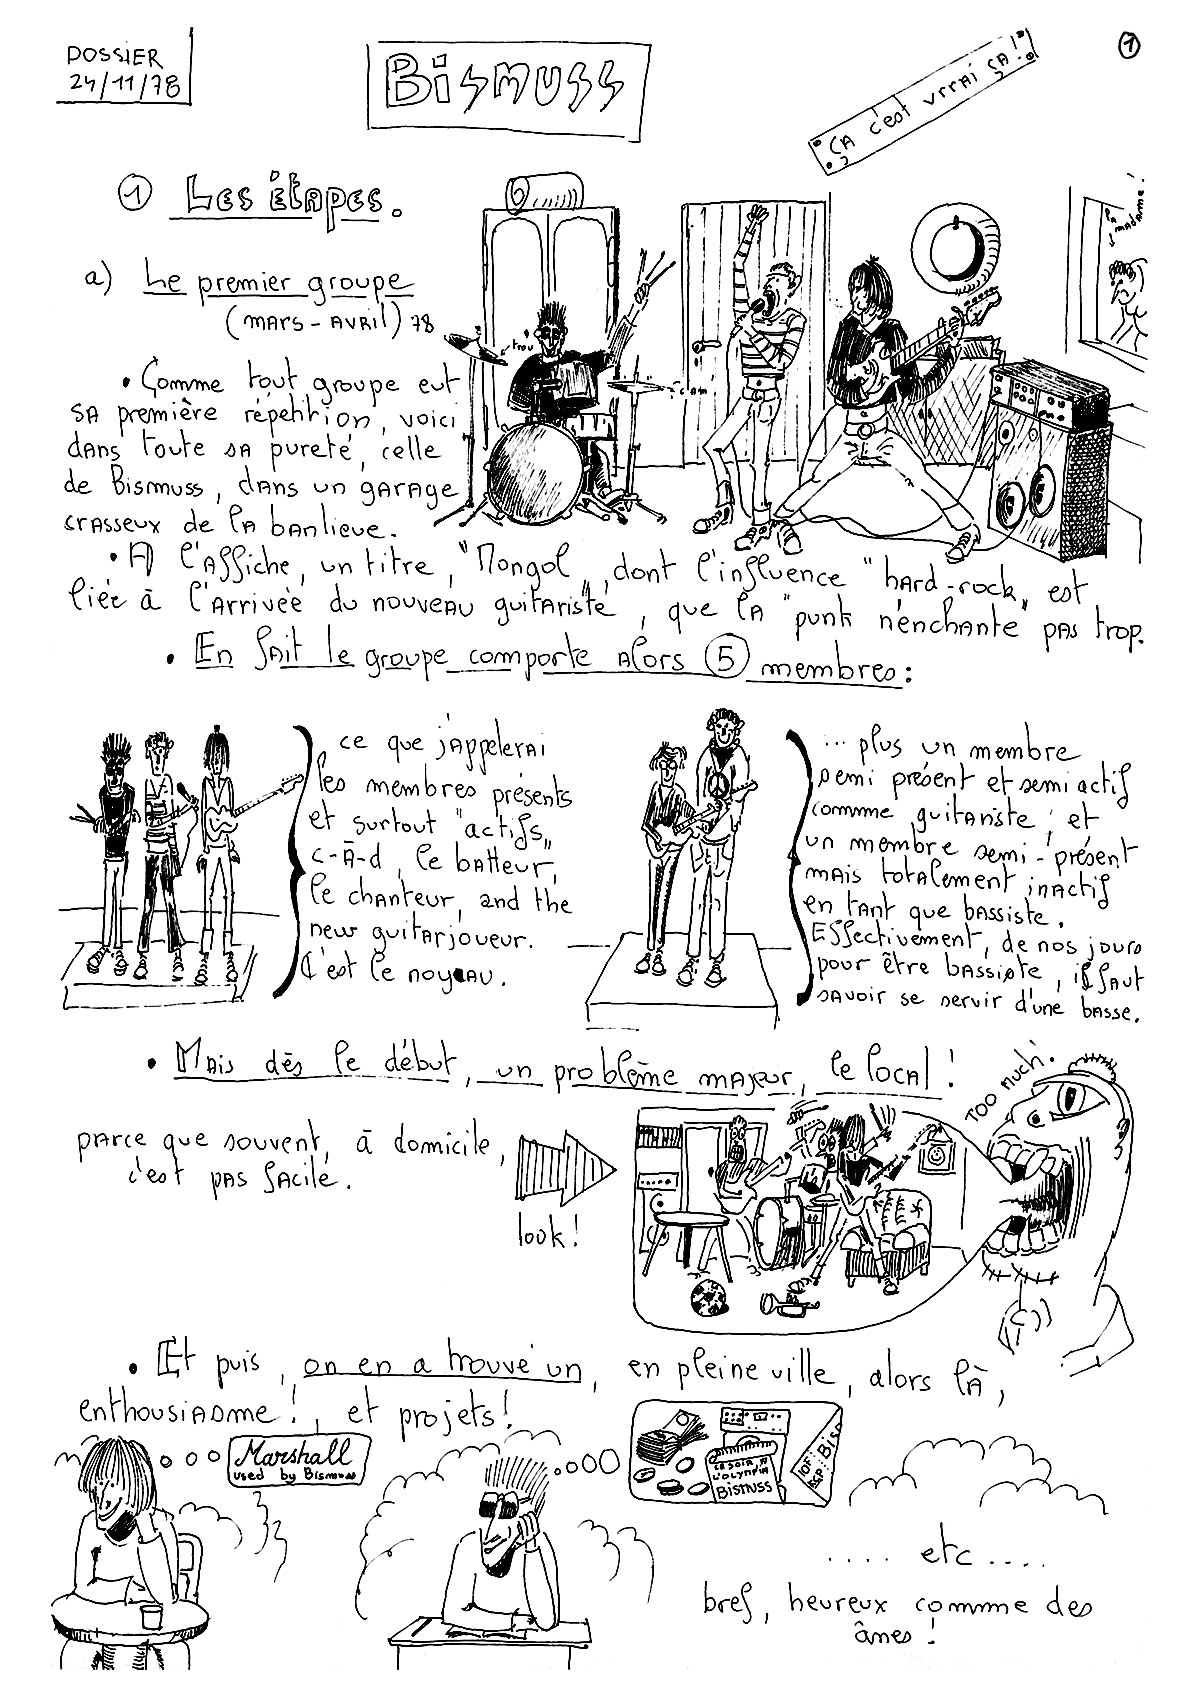 DOSSIER
24/11/78
Bismuss
ÇA c'est vrrai ça!
1
1 Les étapes.
a) Le premier groupe
(MARS-AVRIL) 78
trou
LA MADAME!
• Comme tout groupe eut
sa première répétition, voici
dans toute sa pureté, celle
de Bismuss, dans un garage
crasseux de la banlieue.
• A l'affiche, un titre, "Mongol", dont l'influence "hard-rock" est
liée à l'arrivée du nouveau guitariste, que la "punk n'enchante" pas trop.
• En fait le groupe comporte alors 5 membres :
ce que j'appelerai
les membres présents
et surtout "actifs"
c-à-d, le batteur,
le chanteur, and the
new guitarjoueur.
C'est le noyau.
... plus un membre
semi présent et semi actif
commme guitariste ; et
un membre semi-présent
mais totalement inactif
en tant que bassiste.
Effectivement, de nos jours
pour être bassiste, il faut
savoir se servir d'une basse.
• Mais dès le début, un problème majeur, le local !
TOO MUCH!
parce que souvent, à domicile,
c'est pas facile.
look!
• Et puis, on en a trouvé un, en pleine ville, alors là,
enthousiasme !, et projets !
Marshall
used by Bismuss
CE SOIR, A
L'OLYMPIA
BISMUSS
10F
BIS
.... etc ....
bref, heureux commme des
ânes !